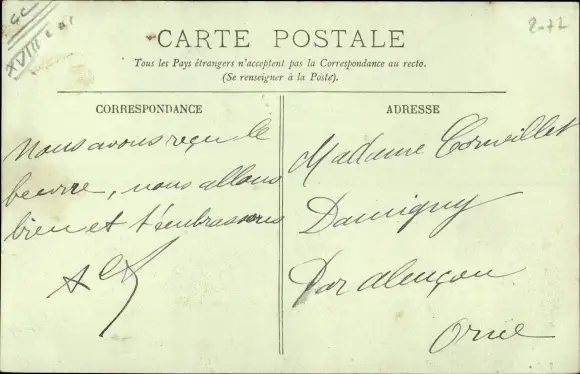 4C
XVIIIe at
2-72
CARTE POSTALE
Tous les Pays étrangers n'acceptent pas la Correspondance au recto.
(Se renseigner à la Poste).
CORRESPONDANCE
Nous avons reçu le
beurre, nous allons
bien et t'embrassons
ADRESSE
Madame Cornvillet
Damigny
Par Alençon
Orne